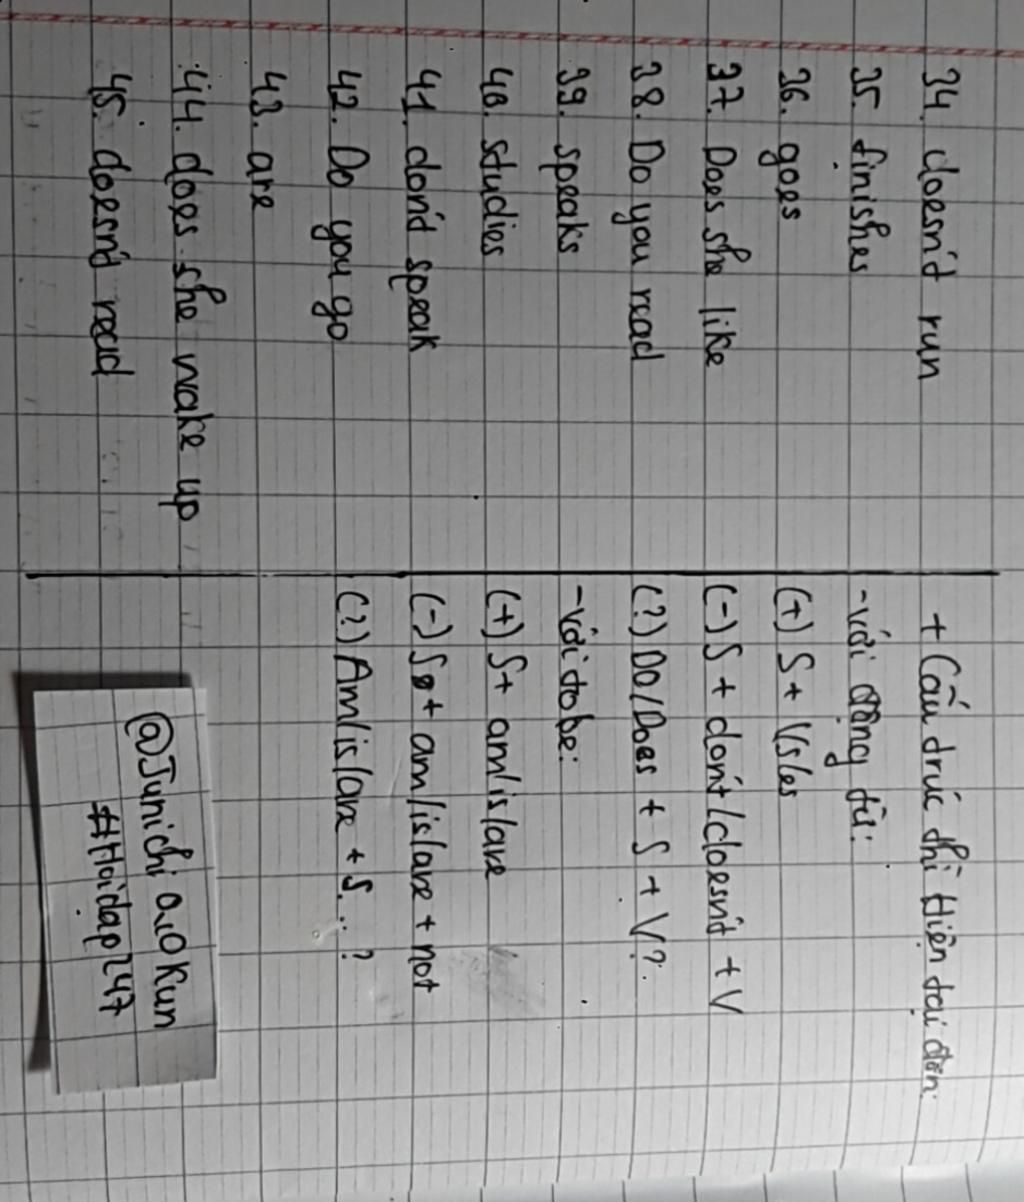 34. doesn't run
35. finishes
36. goes
37. Does she like
38. Do you read
39. speaks
40. studies
41. don't speak
42. Do you go
43. are
44. does she wake up
45. doesn't read
+ Cấu trúc thì Hiện tại đơn:
- với động từ:
(+) S + V/s/es
(-) S + don't/doesn't + V
(?) Do/Does + S + V?
- với tobe:
(+) S + am/is/are
(-) S + am/is/are + not
(?) Am/is/are + S...?
@JunichiaiOKun
#Hoidap247